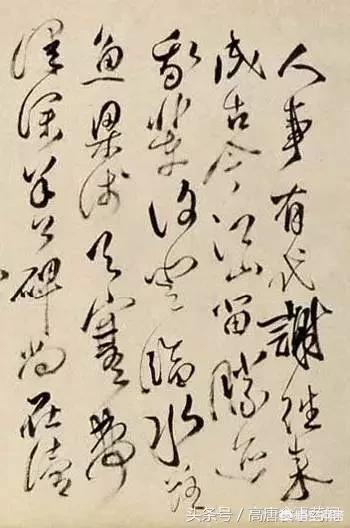 人事有代謝往来
成古今江山留勝迹
我輩復登臨水落
魚梁浅天寒夢
澤深羊公碑尚在讀
头条号 / 高唐